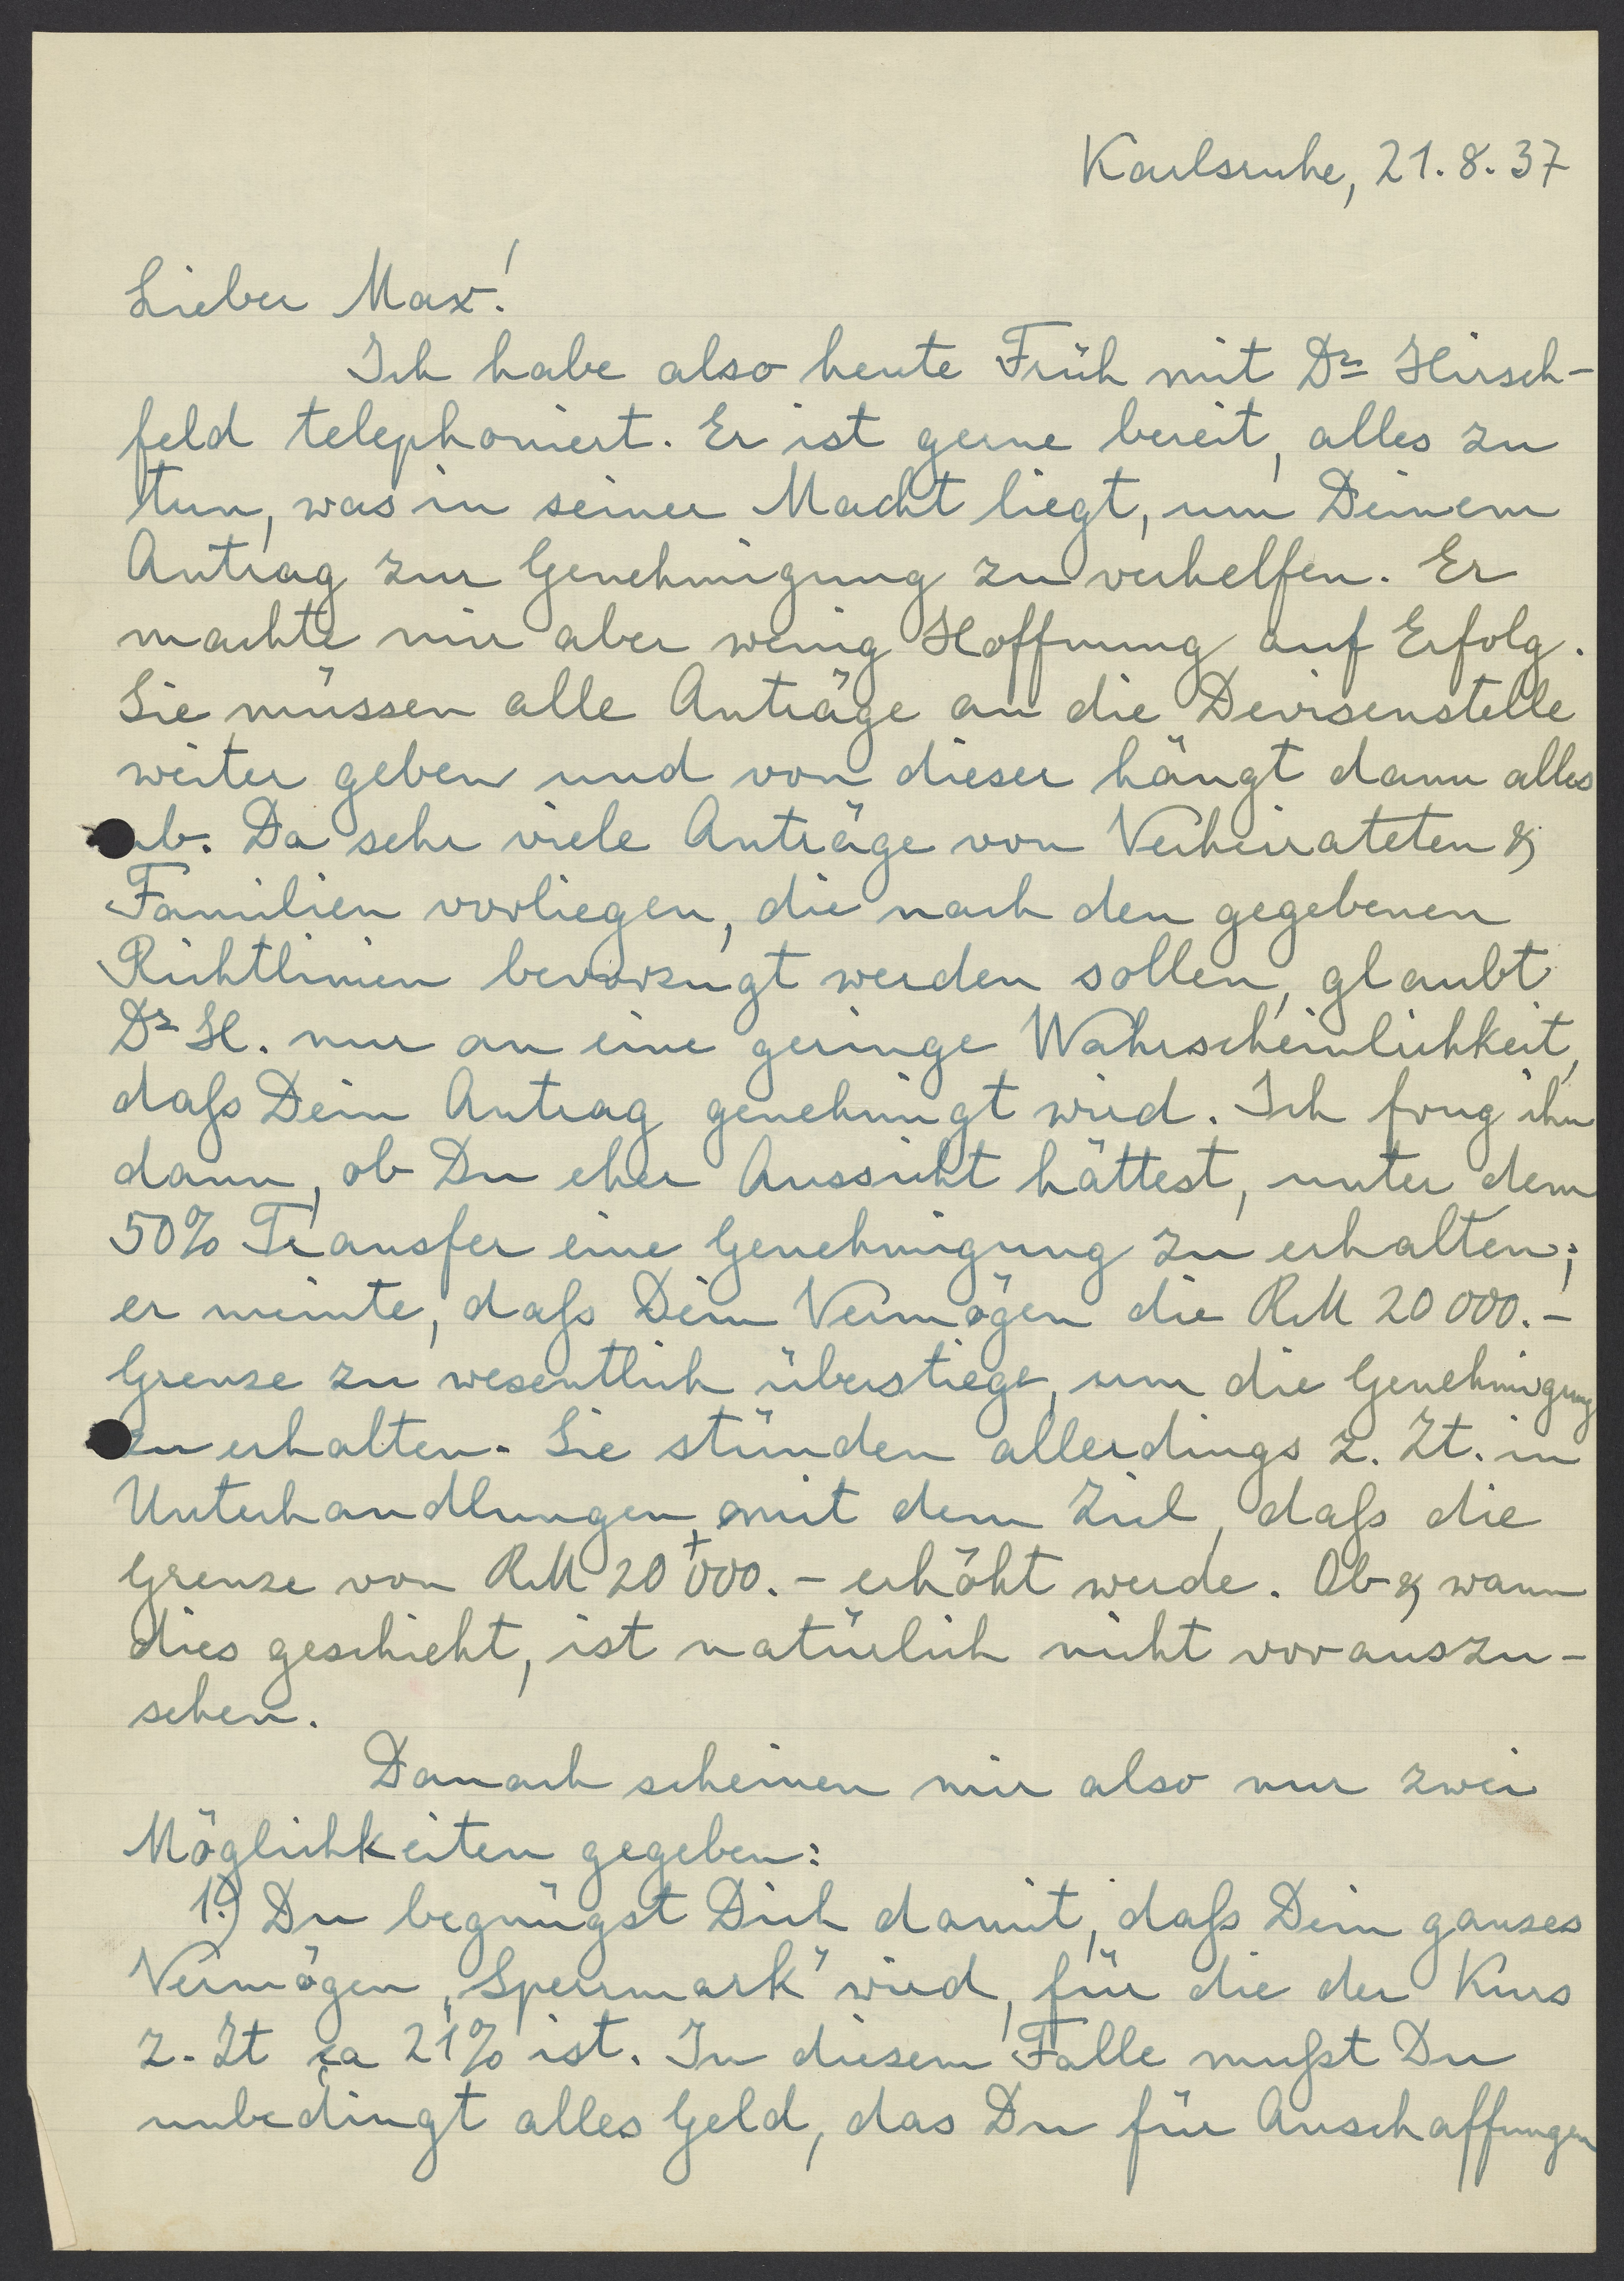 Karlsruhe, 21.8.37
Lieber Max!
Ich habe also heute Früh mit Dr Hirsch-
feld telephoniert. Er ist gerne bereit, alles zu
tun, was in seiner Macht liegt, um Deinem
Antrag zur Genehmigung zu verhelfen. Er
machte mir aber wenig Hoffnung auf Erfolg.
Sie müssen alle Anträge an die Devisenstelle
weiter geben und von dieser hängt dann alles
ab. Da sehr viele Anträge von Verheirateten &
Familien vorliegen, die nach den gegebenen
Richtlinien bevorzugt werden sollen, glaubt
Dr H. nur an eine geringe Wahrscheinlichkeit,
daß Dein Antrag genehmigt wird. Ich frug ihn
dann, ob Du eher Aussicht hättest, unter dem
50% Transfer eine Genehmigung zu erhalten;
er meinte, daß Dein Vermögen die RM 20000.-
Grenze zu wesentlich überstiege, um die Genehmigung
zu erhalten. Sie stünden allerdings z. Zt. in
Unterhandlungen, mit dem Ziel, daß die
Grenze von RM 20+000.- erhöht werde. Ob & wann
dies geschieht, ist natürlich nicht vorauszu-
sehen.
Danach scheinen mir also nur zwei
Möglichkeiten gegeben:
1.) Du begnügst Dich damit, daß Dein ganzes
Vermögen „Sperrmark" wird, für die der Kurs
z. Zt ca 21% ist. In diesem Falle mußt Du
unbedingt alles Geld, das Du für Anschaffungen